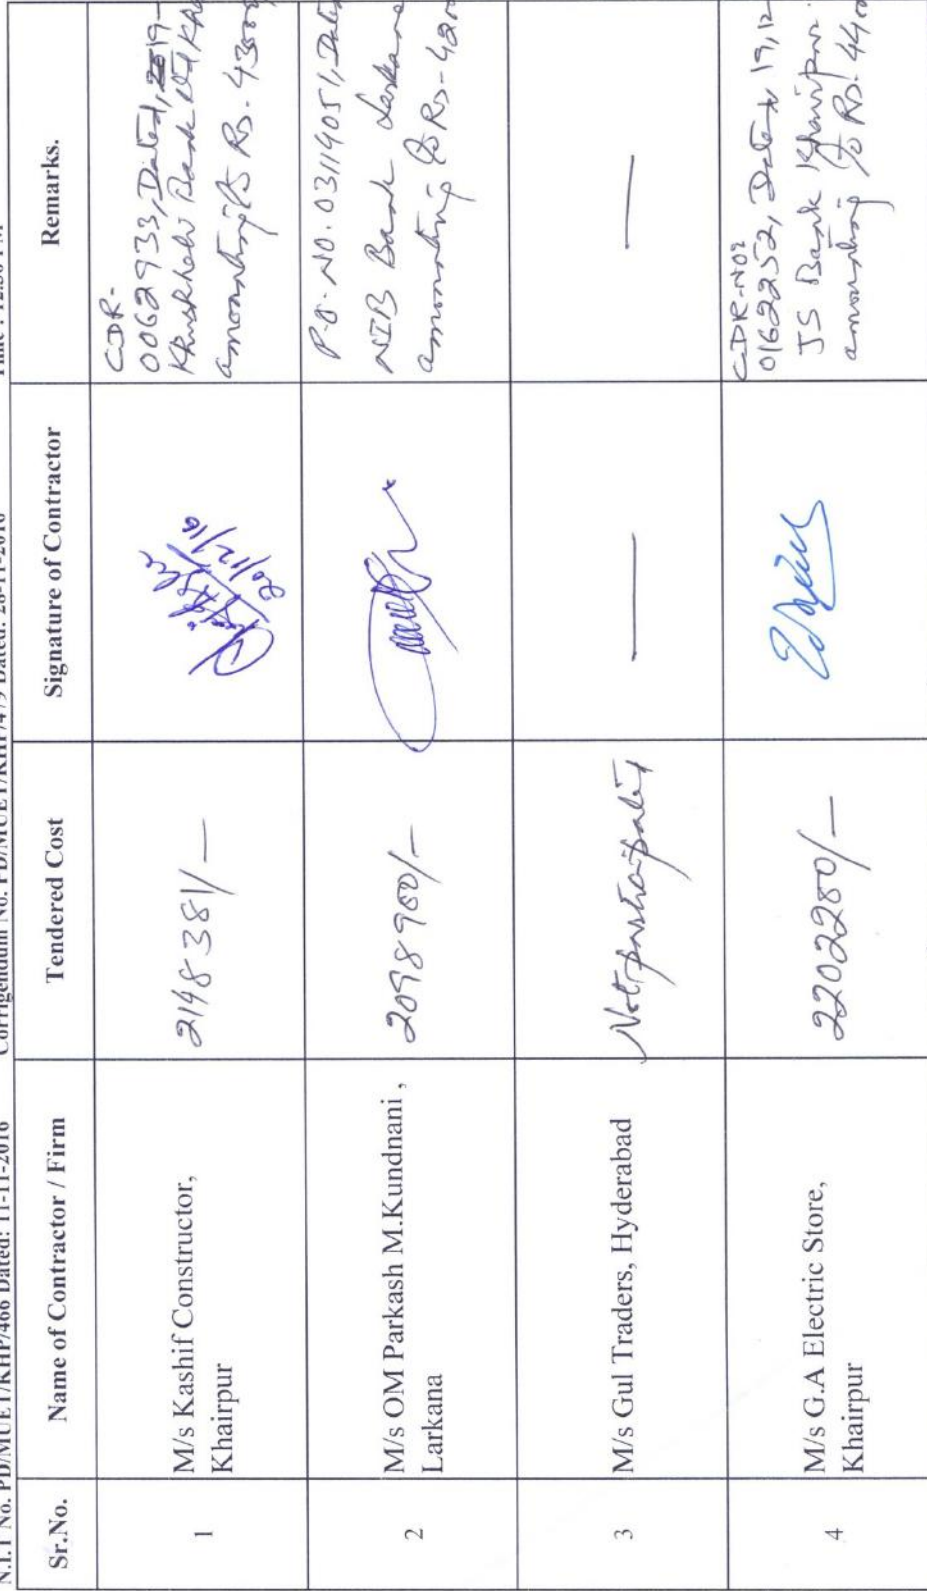 N.I.T No. PD/MUET/KHP/466 Dated: 11-11-2016 Corrigendum No. PD/MUET/KHP/479 Dated: 28-11-2016 Time : 12:30 PM
Sr.No. Name of Contractor / Firm Tendered Cost Signature of Contractor Remarks.
1
M/s Kashif Constructor,
Khairpur
2148381/—
20/12/16
CDR-
0062933, Dated,
Khushhali Bank Ltd
amounting Rs. 43000
2
M/s OM Parkash M.Kundnani ,
Larkana
2098900/—
P.O-NO. 03119051, Date
NIB Bank Larkana
amounting Rs-4200
3
M/s Gul Traders, Hyderabad
Not participated
—
—
4
M/s G.A Electric Store,
Khairpur
2202280/—
CDR-NO:
01622252, Dated 19,12-
JS Bank Khairpur
amounting Rs. 4400